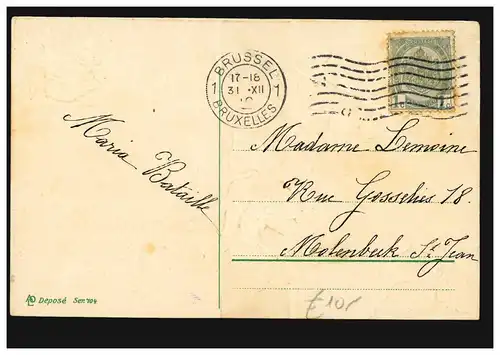 BRUSSEL
1 17-18 1
31 XII
BRUXELLES
Maria Bataille
Madame Lemoine
Rue Gosselies 18.
Molenbeek St Jean
Déposé Ser. 104
£10